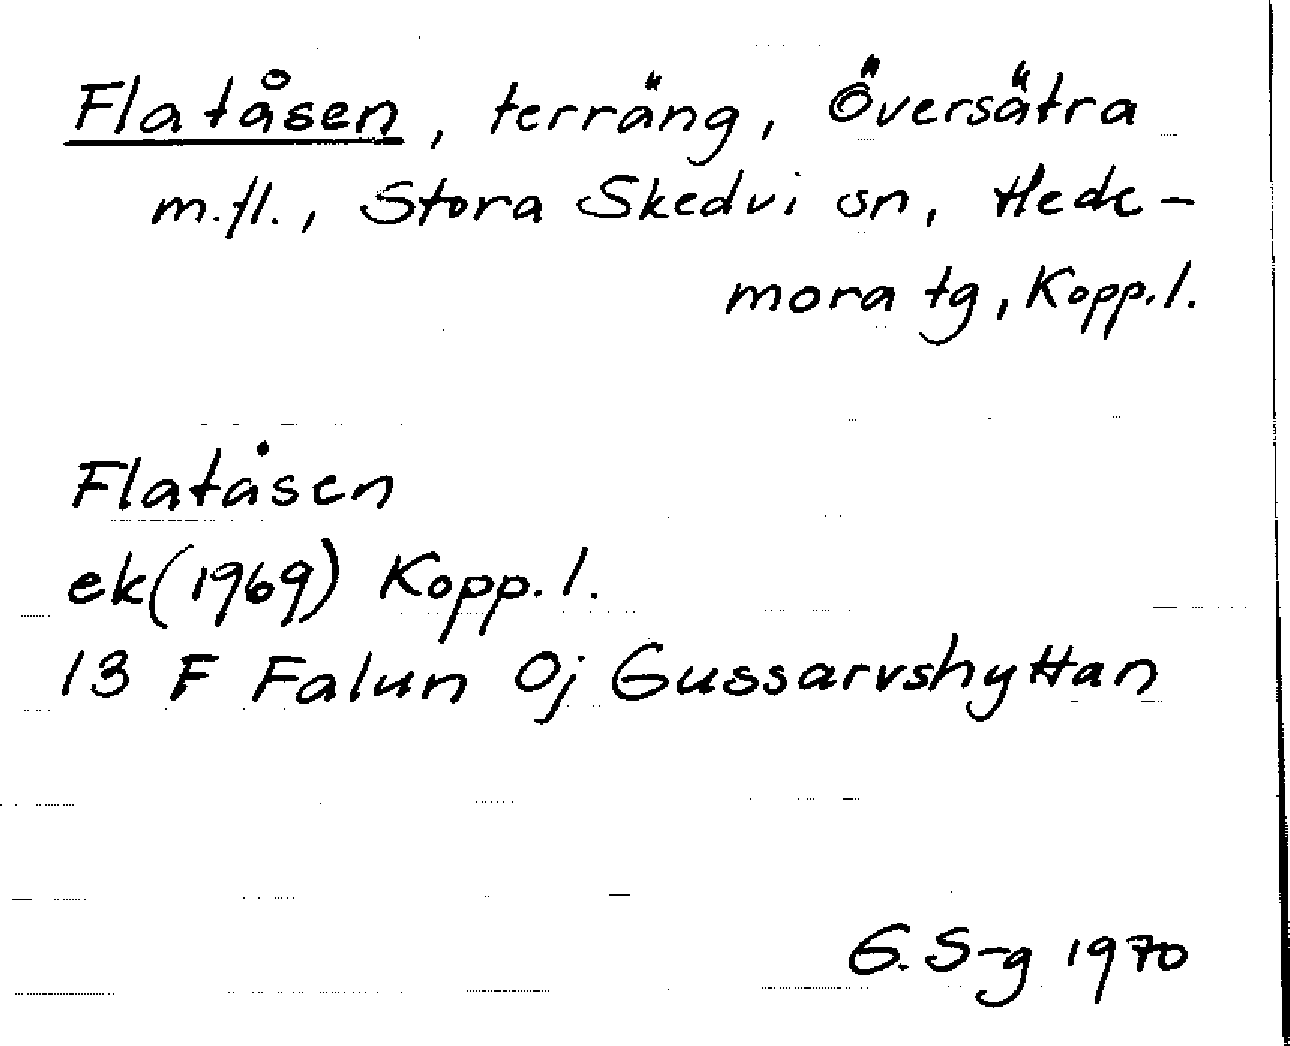 Flatåsen, terräng, Översätra
m.fl., Stora Skedvi sn, Hede-
mora tg, Kopp.l.
Flatåsen
ek(1969) Kopp.l.
13 F Falun 0j Gussarvshyttan
G. S-g 1970